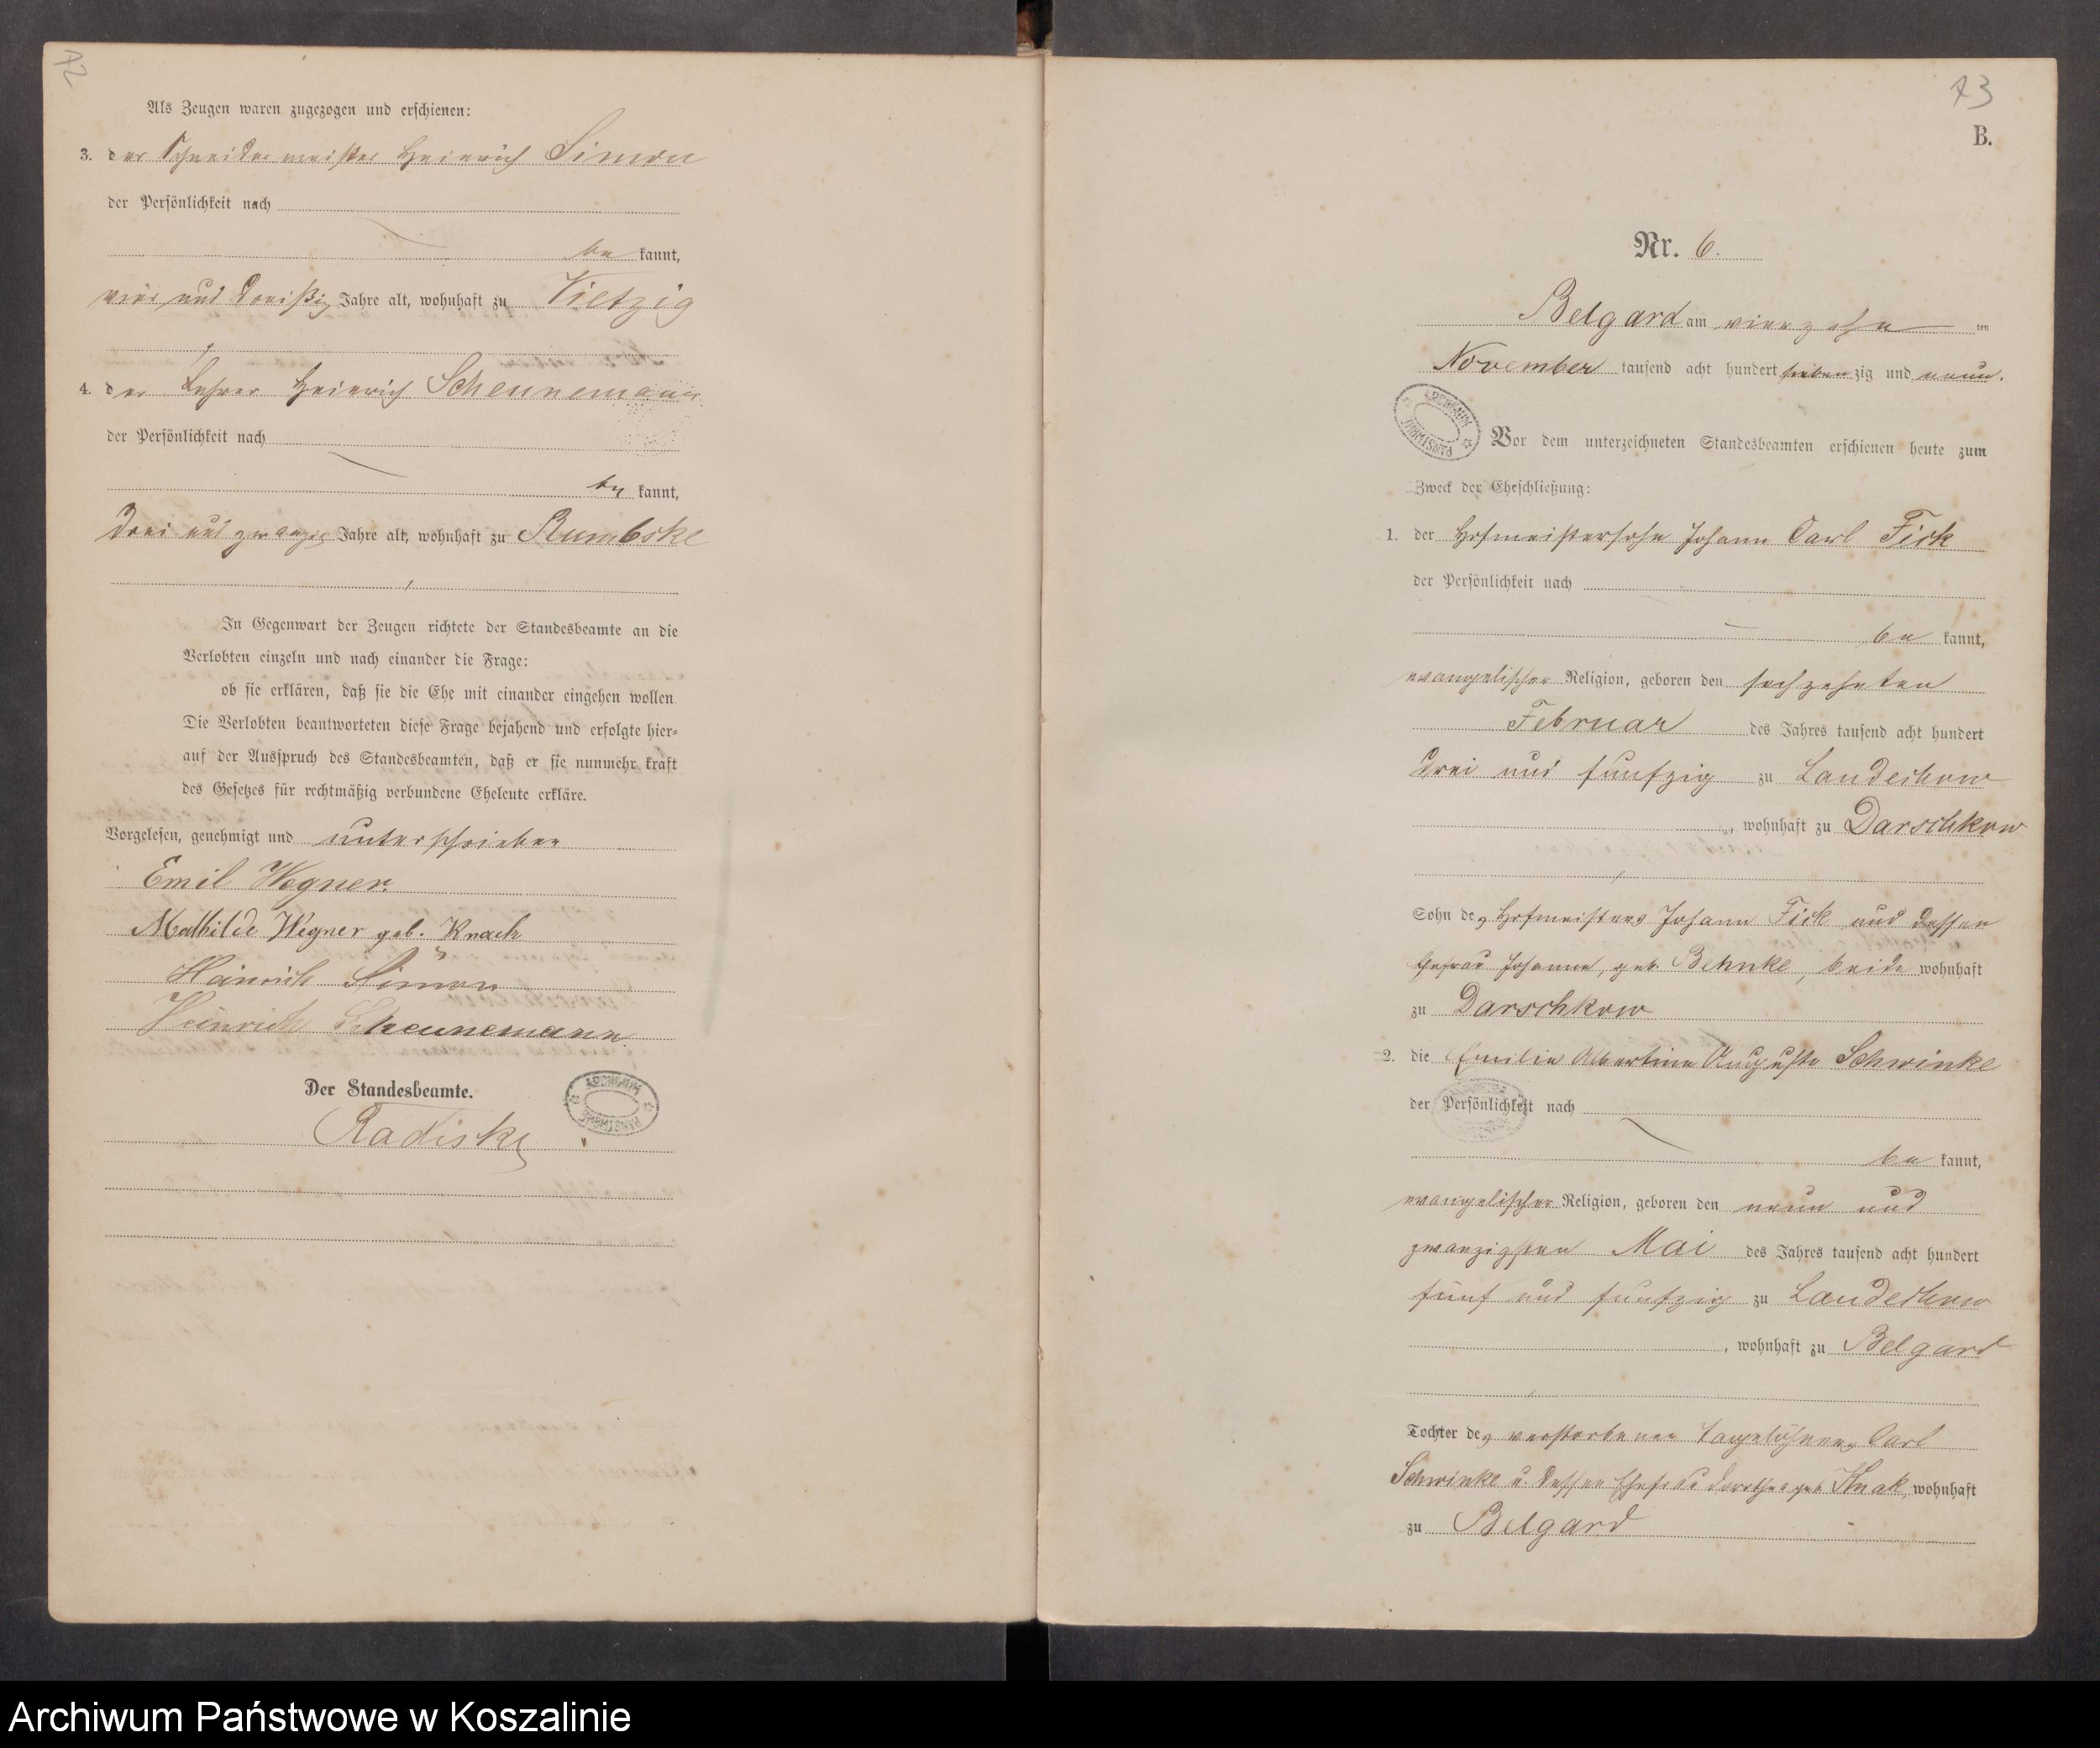 72
Als Zeugen waren zugezogen und erschienen:
3. der Schneidermeister Heinrich Simon
der Persönlichkeit nach
be kannt,
vier und dreißig Jahre alt, wohnhaft zu Vietzig
4. der Lehrer Heinrich Scheunemann
der Persönlichkeit nach
be kannt,
drei und zwanzig Jahre alt, wohnhaft zu Rumbske
In Gegenwart der Zeugen richtete der Standesbeamte an die
Verlobten einzeln und nach einander die Frage:
ob sie erklären, daß sie die Ehe mit einander eingehen wollen
Die Verlobten beantworteten diese Frage bejahend und erfolgte hier-
auf der Ausspruch des Standesbeamten, daß er sie nunmehr kraft
des Gesetzes für rechtmäßig verbundene Eheleute erkläre.
Vorgelesen, genehmigt und unterschrieben
Emil Wegner.
Mathilde Wegner geb. Knach
Heinrich Simon
Heinrich Scheunemann.
Der Standesbeamte.
ARCHIWUM PAŃSTWOWE
Radiske
73
B.
Nr. 6.
Belgard am vierzehn ten
November tausend acht hundert siebenzig und neun.
ARCHIWUM PAŃSTWOWE
Vor dem unterzeichneten Standesbeamten erschienen heute zum
Zweck der Eheschließung:
1. der Hofmeistersohn Johann Carl Fick
der Persönlichkeit nach
be kannt,
evangelischer Religion, geboren den sechzehnten
Februar des Jahres tausend acht hundert
drei und funfzig zu Landechow
, wohnhaft zu Darschkow
Sohn des Hofmeisters Johann Fick und dessen
Ehefrau Johanne, geb. Behnke, beide wohnhaft
zu Darschkow
2. die Emilie Albertine Auguste Schwinke
der Persönlichkeit nach
be kannt,
evangelischer Religion, geboren den neun und
zwanzigsten Mai des Jahres tausend acht hundert
fünf und funfzig zu Landechow
, wohnhaft zu Belgard
Tochter des verstorbenen Tagelöhners Carl
Schwinke u. dessen Ehefrau Dorothea geb Knak, wohnhaft
zu Belgard
Archiwum Państwowe w Koszalinie